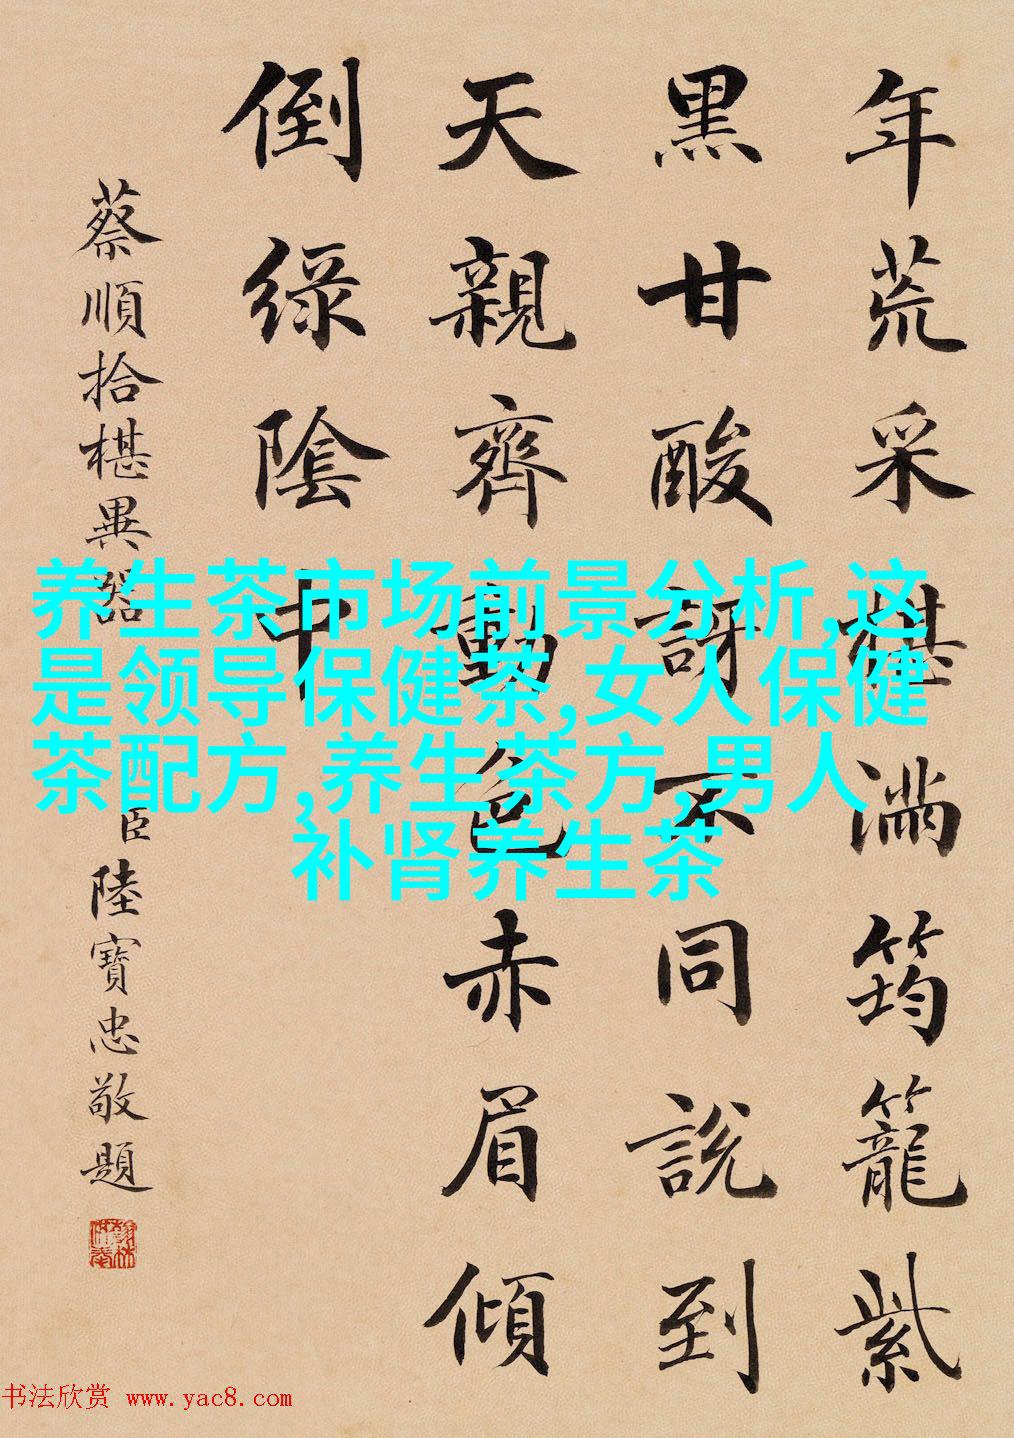 年荒采椹滿筠籠紫
黑甘酸訝不同說到
天親齊動色赤眉傾
倒綠陰中
蔡順拾椹異器
臣陸寶忠敬題
养生茶市场前景分析,这
是领导保健茶,女人保健
茶配方,养生茶方,男人
补肾养生茶
书法欣赏 www.yac8.com